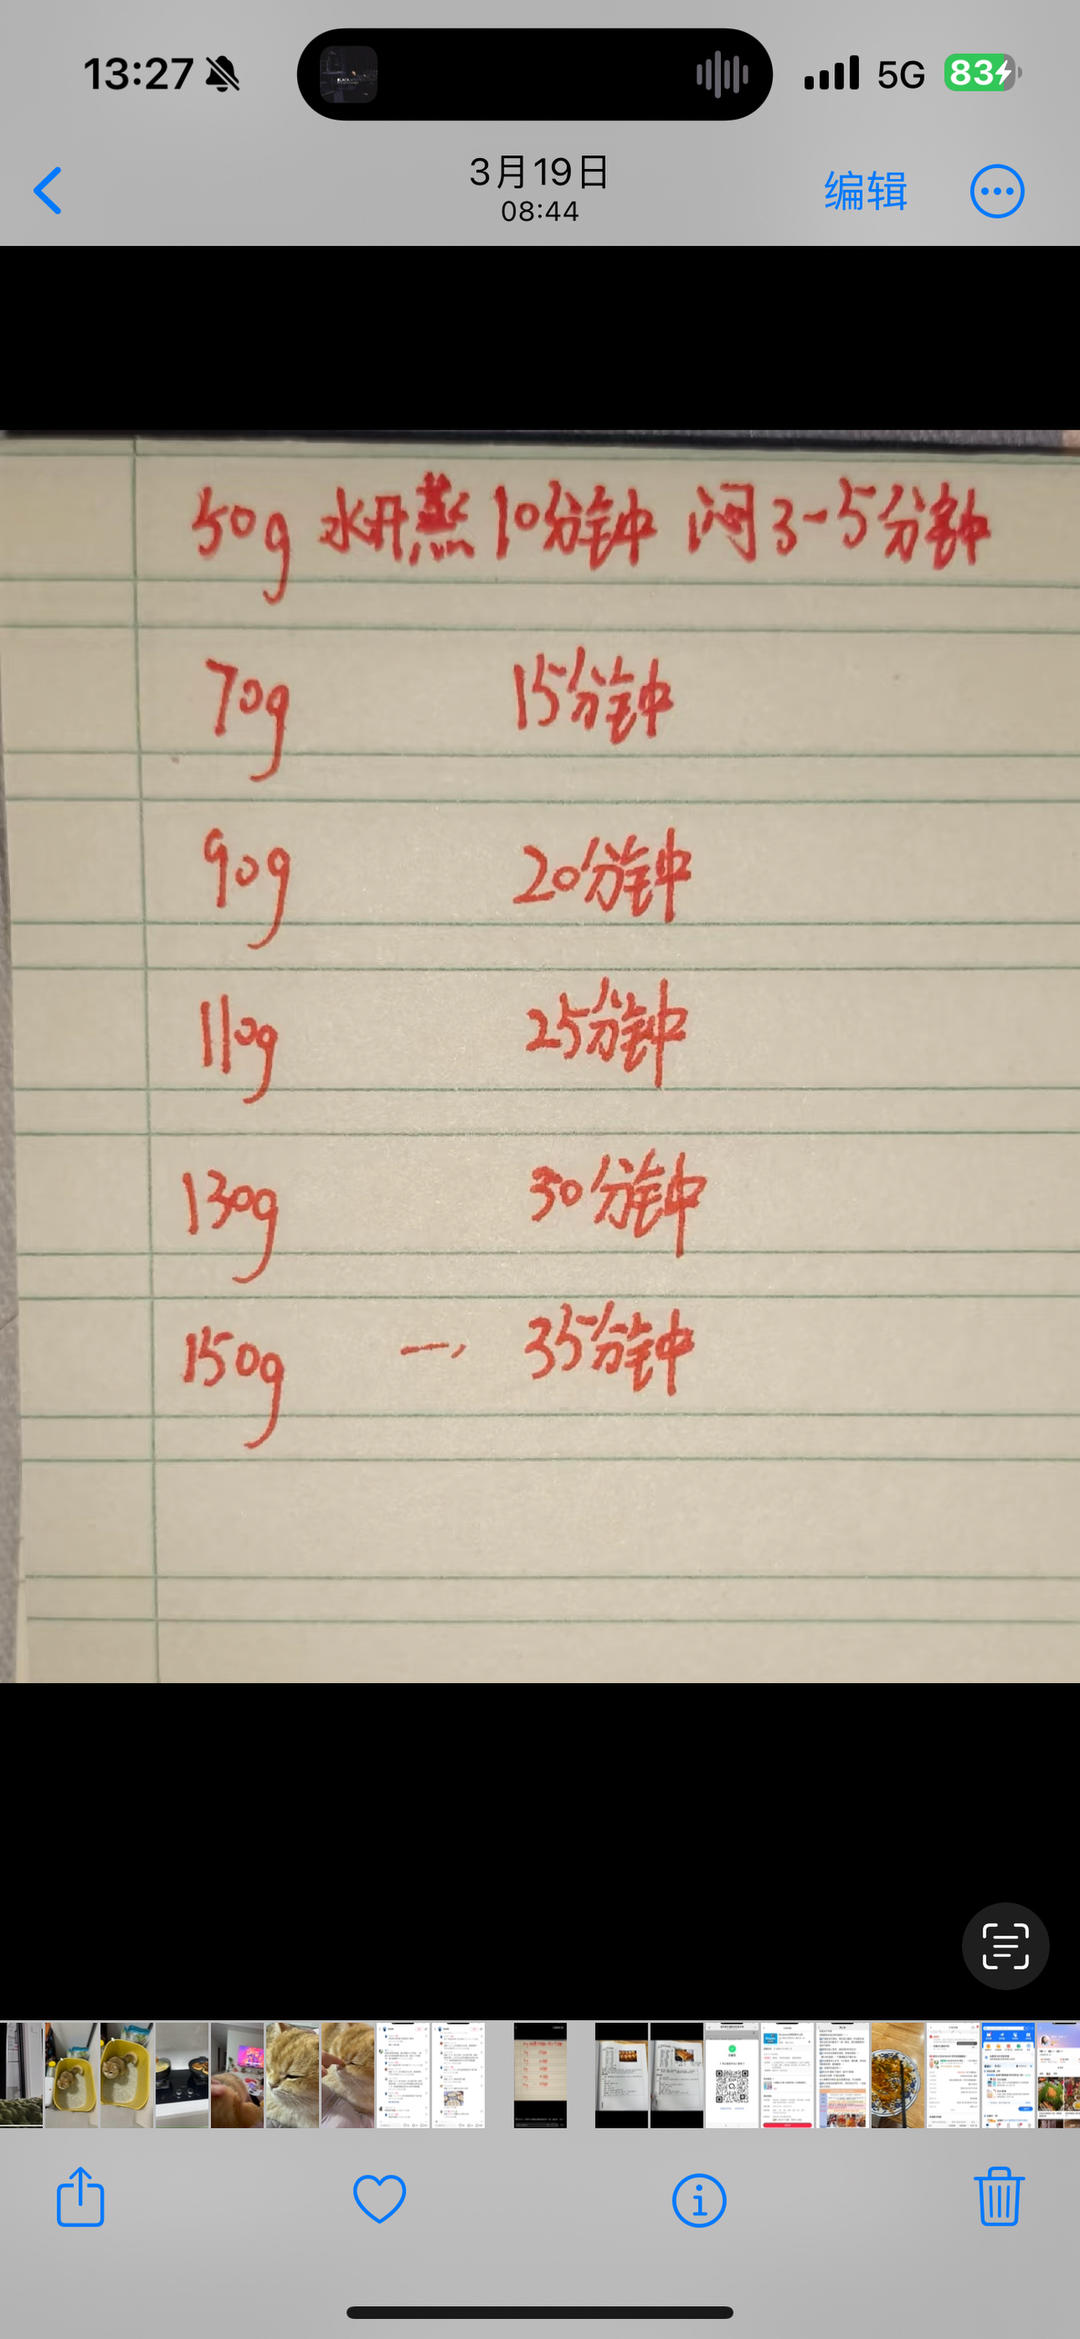 13:27
5G
83
3月19日
08:44
编辑
50g 水开蒸10分钟 闷3-5分钟
70g 15分钟
90g 20分钟
110g 25分钟
130g 30分钟
150g 一, 35分钟